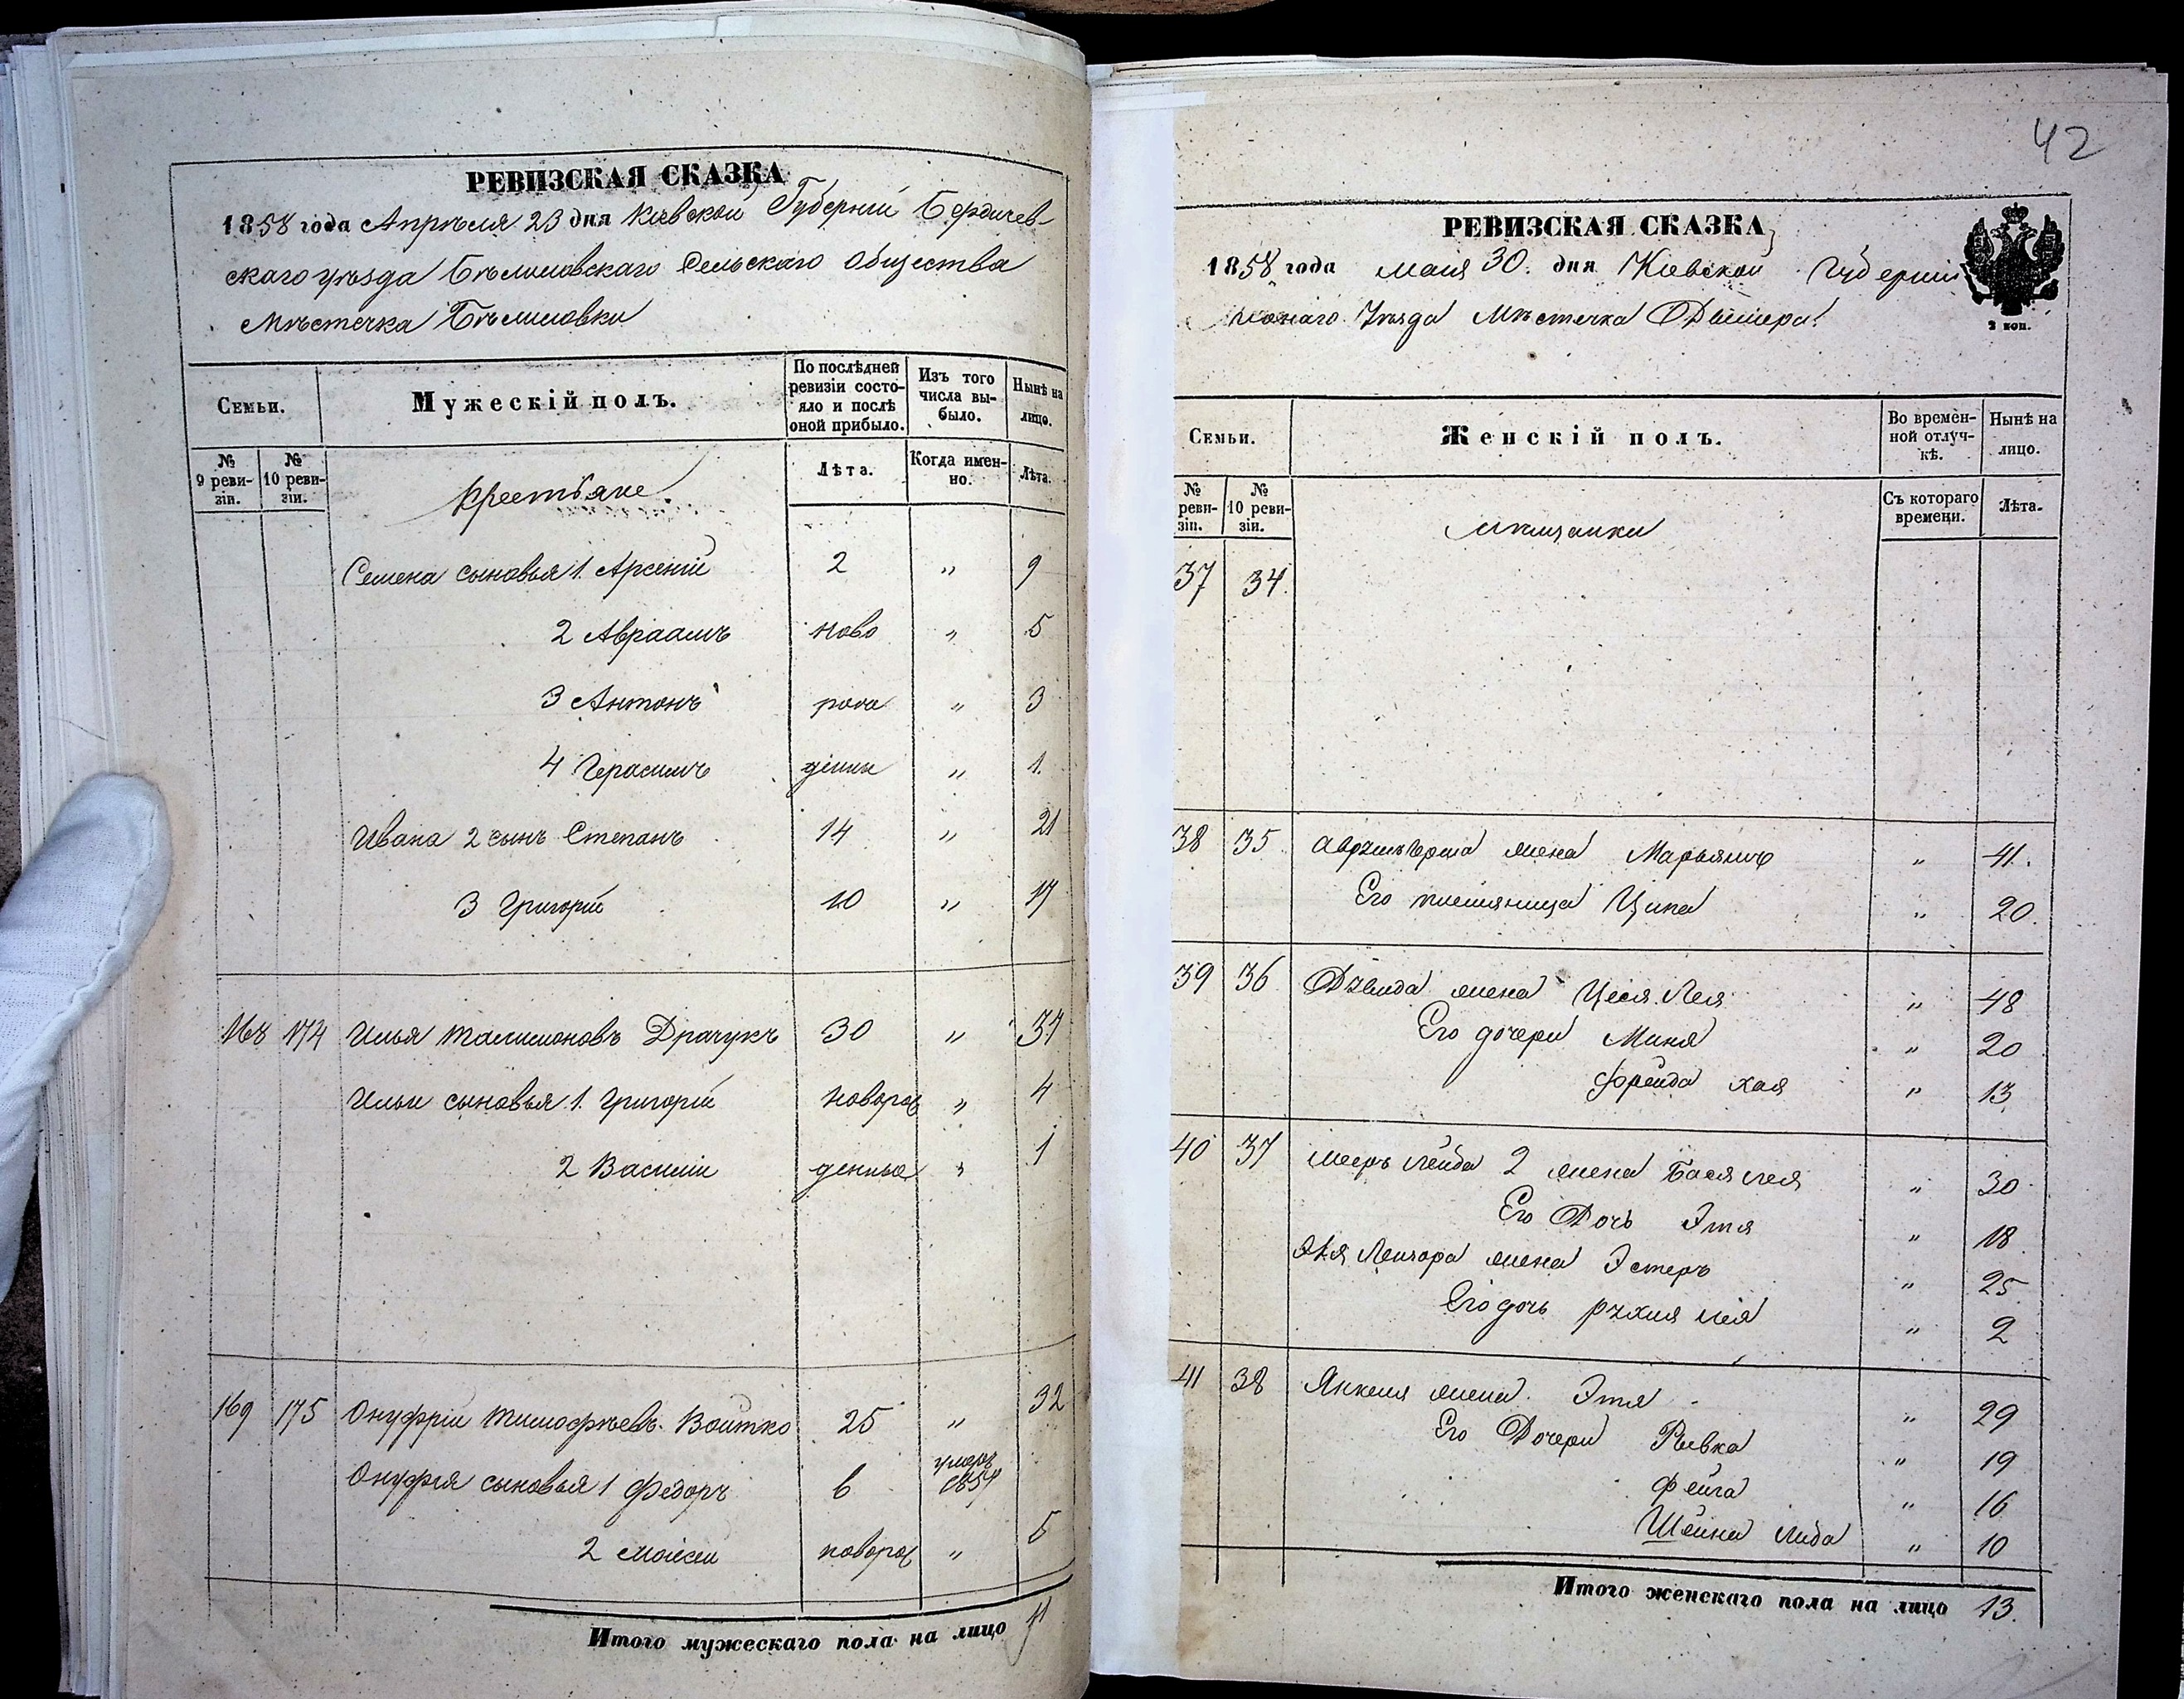 РЕВИЗСКАЯ СКАЗКА
1858 года Апрѣля 23 дня Кіевской Губерніи Бердичев-
скаго уѣзда Бѣлиловскаго Сельскаго Общества
Мѣстечка Бѣлиловки
Семьи.
Мужескій полъ.
По послѣдней ревизіи состо-яло и послѣ оной прибыло.
Изъ того числа вы-было.
Нынѣ на лицо.
№ 9 реви-зіи.
№ 10 реви-зіи.
Крестьяне.
Лѣта.
Когда имен-но.
Лѣта.
Семена сыновья 1. Арсеній 2 " 9
2 Авраамъ ново " 5
3 Антонъ рож " 3
4 Герасимъ " 1.
Ивана 2 сынъ Степанъ 14 " 21
3 Григорій 10 " 17
168 174 Илья Драчукъ 30 " 37
Ильи сыновья 1. Григорій новорож " 4
2 Василій денные " 1
169 175 Онуфрій Тимофѣевъ Войтко 25 " 32
Онуфрія сыновья 1 Федоръ 6 умеръ
2 Моисей новорож " 5
Итого мужескаго пола на лицо 11
42
РЕВИЗСКАЯ СКАЗКА
1858 года мая 30. дня Кіевской Губерніи
Уѣзда Мѣстечка Дымера
2 коп.
Семьи.
Женскій полъ.
Во времен-ной отлуч-кѣ.
Нынѣ на лицо.
№ реви-зіи.
№ 10 реви-зіи.
мѣщанки
Съ котораго времени.
Лѣта.
37 34.
38 35 жена Марьямъ " 41.
Его племяница Ципа " 20.
39 36 Дувида жена Цеся Лея " 48
Его дочери Миня " 20
Фрейда хая " 13
40 37 мееръ лейба 2 жена Бася лея " 30
Его Дочь Этя " 18
жена Эстеръ " 25
Его дочь рухля лея " 2
41 38 Янкеля жена Этя " 29
Его Дочери Рывка " 19
Фейга " 16
Шейна либа " 10
Итого женскаго пола на лицо 13.